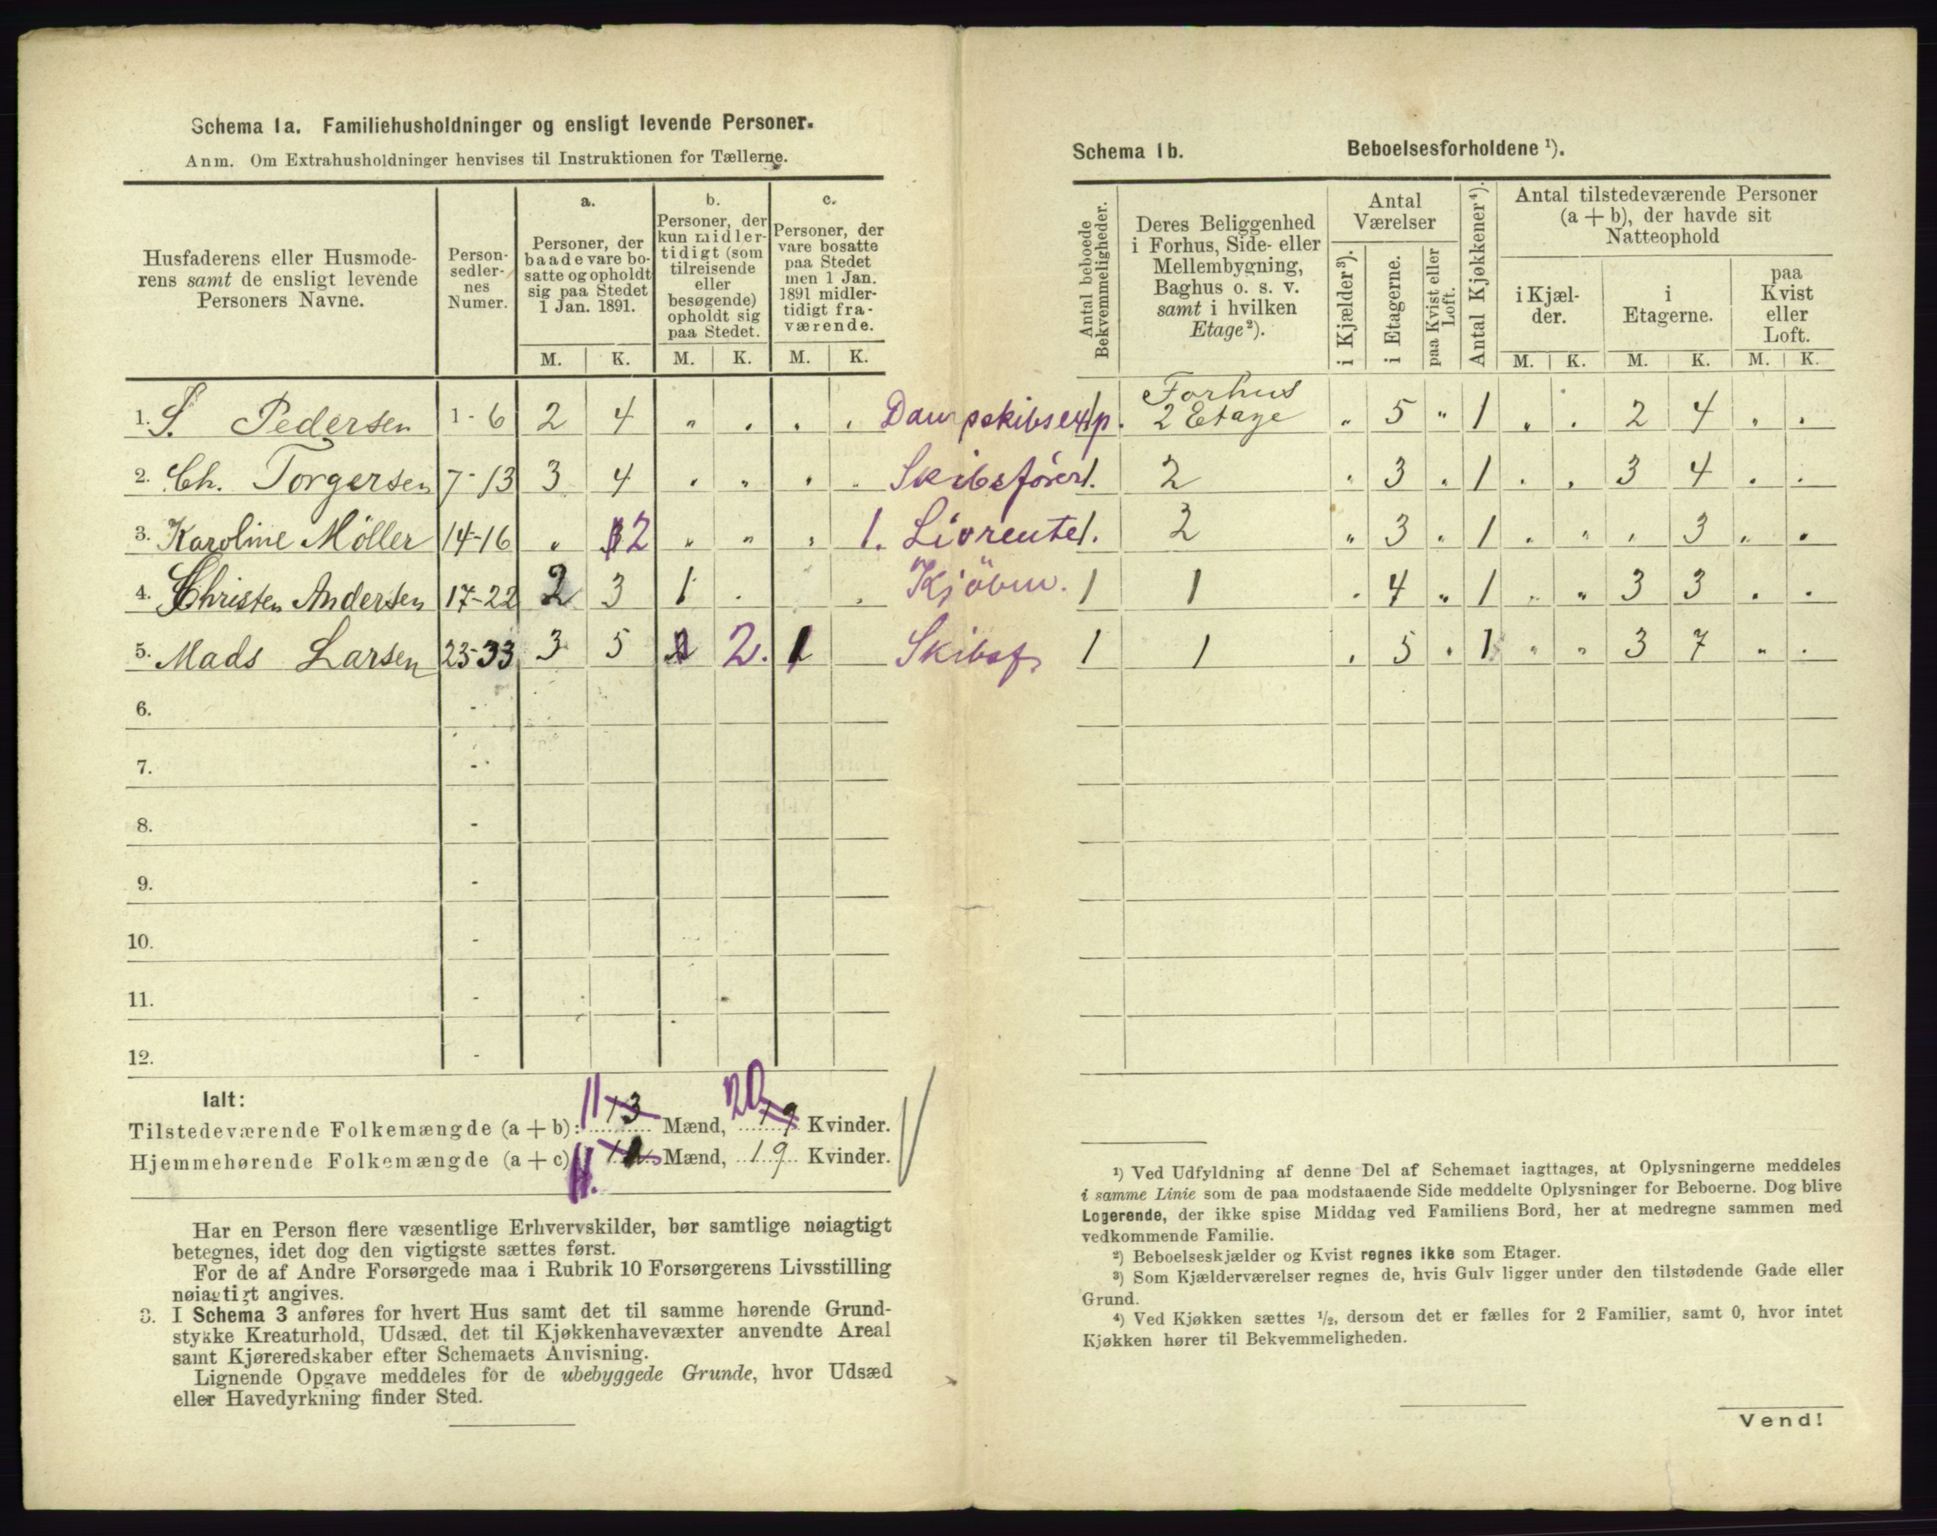 Schema 1a. Familiehusholdninger og ensligt levende Personer.
Anm. Om Extrahusholdninger henvises til Instruktionen for Tællerne.
Husfaderens eller Husmode-
rens samt de ensligt levende
Personers Navne.
Person-
sedler-
nes
Numer.
a.
Personer, der
baade vare bo-
satte og opholdt
sig paa Stedet
1 Jan. 1891.
b.
Personer, der
kun midler-
tidigt (som
tilreisende
eller
besøgende)
opholdt sig
paa Stedet.
c.
Personer, der
vare bosatte
paa Stedet
men 1 Jan.
1891 midler-
tidigt fra-
værende.
M. K. M. K. M. K.
1. S. Pedersen 1-6 2 4 „ . . . Dampskibsexp.
2. Ch. Torgersen 7-13 3 4 . „ . . Skibsfører
3. Karoline Møller 14-16 „ 2 „ „ . 1. Livrente
4. Christen Andersen 17-22 2 3 1 . . Kjöbm.
5. Mads Larsen 23-33 3 5 2. 1 Skibsf.
6. -
7. -
8. -
9. -
10. -
11. -
12. -
Ialt:
Tilstedeværende Folkemængde (a + b): 11 13 Mænd, 20 19 Kvinder.
Hjemmehørende Folkemængde (a + c) 11. Mænd, 19 Kvinder.
Har en Person flere væsentlige Erhvervskilder, bør samtlige nøiagtigt
betegnes, idet dog den vigtigste sættes først.
For de af Andre Forsørgede maa i Rubrik 10 Forsørgerens Livsstilling
nøiagtigt angives.
3. I Schema 3 anføres for hvert Hus samt det til samme hørende Grund-
stykke Kreaturhold, Udsæd, det til Kjøkkenhavevæxter anvendte Areal
samt Kjøreredskaber efter Schemaets Anvisning.
Lignende Opgave meddeles for de ubebyggede Grunde, hvor Udsæd
eller Havedyrkning finder Sted.
Schema 1b. Beboelsesforholdene ¹).
Antal beboede
Bekvemmeligheder.
Deres Beliggenhed
i Forhus, Side- eller
Mellembygning,
Baghus o. s. v.
samt i hvilken
Etage²).
Antal
Værelser
i Kjælder³).
i Etagerne.
paa Kvist eller
Loft.
Antal Kjøkkener⁴).
Antal tilstedeværende Personer
(a + b), der havde sit
Natteophold
i Kjæl-
der.
i
Etagerne.
paa
Kvist
eller
Loft.
M. K. M. K. M. K.
1 Forhus
2 Etage „ 5 „ 1 . . 2 4 . .
1. 2 „ 3 „ 1 . . 3 4 . .
1. 2 „ 3 „ 1 . „ . 3 . .
1 1 . 4 „ 1 „ „ 3 3 . .
1 1 . 5 . 1 „ „ 3 7 „ .
¹) Ved Udfyldning af denne Del af Schemaet iagttages, at Oplysningerne meddeles
i samme Linie som de paa modstaaende Side meddelte Oplysninger for Beboerne. Dog blive
Logerende, der ikke spise Middag ved Familiens Bord, her at medregne sammen med
vedkommende Familie.
²) Beboelseskjælder og Kvist regnes ikke som Etager.
³) Som Kjælderværelser regnes de, hvis Gulv ligger under den tilstødende Gade eller
Grund.
⁴) Ved Kjøkken sættes ½, dersom det er fælles for 2 Familier, samt 0, hvor intet
Kjøkken hører til Bekvemmeligheden.
Vend!